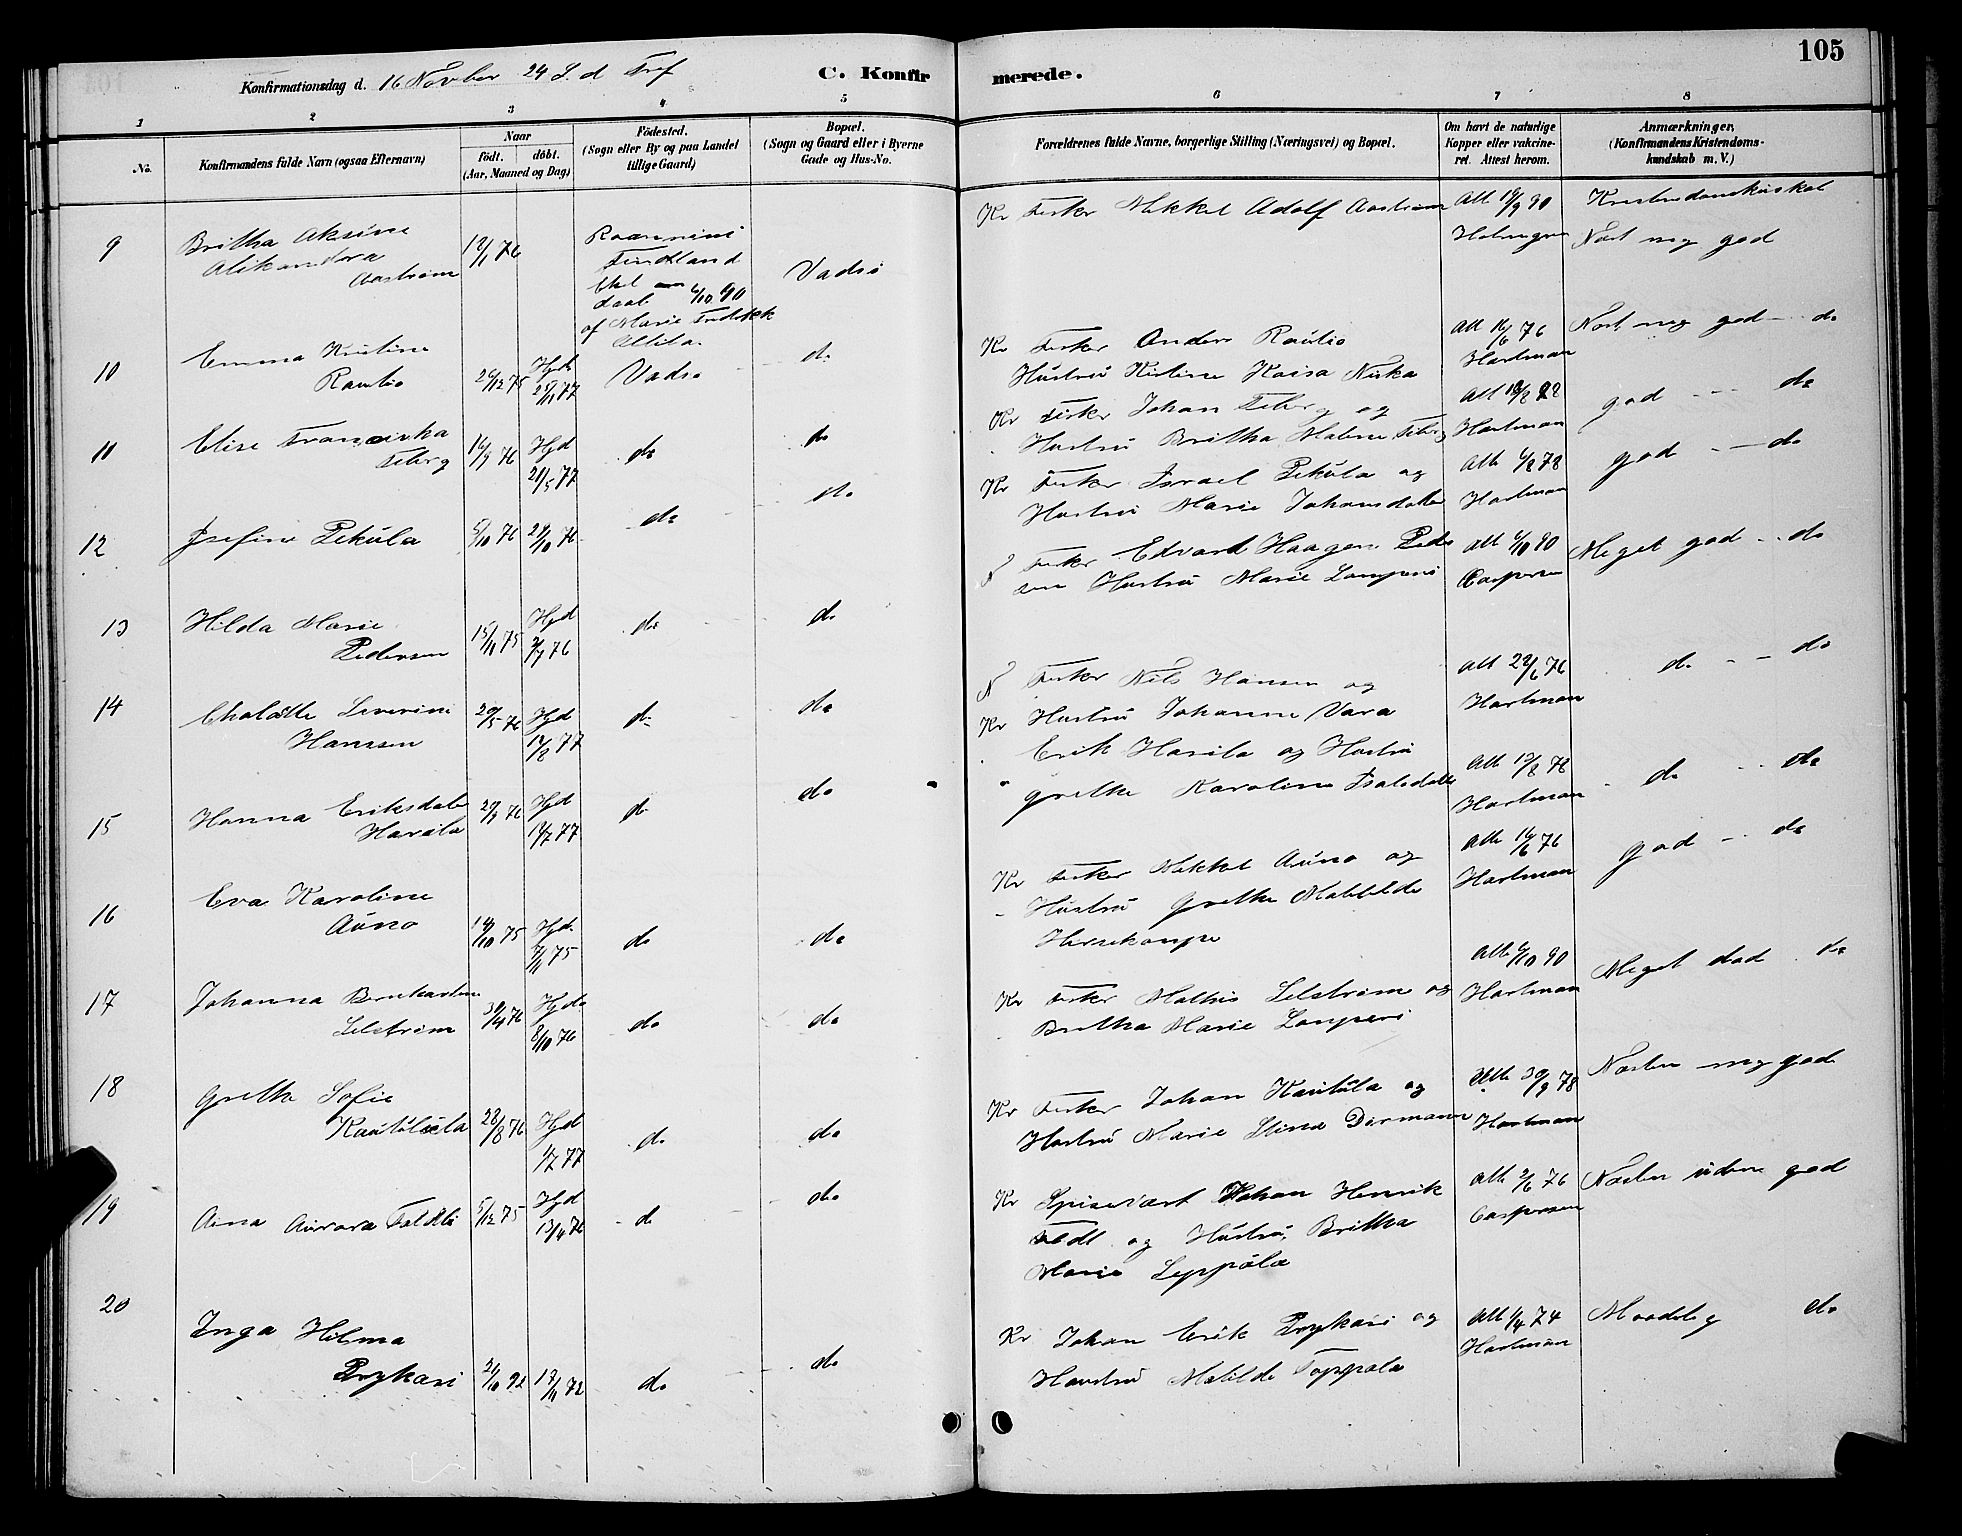 105
Konfirmationsdag d. 16 Novber 24 S. d Tref
C. Konfirmerede.
1 2 3 4 5 6 7 8
No.
Konfirmandens fulde Navn (ogsaa Efternavn)
Naar
födt. döbt.
(Aar, Maaned og Dag)
Födested.
(Sogn eller By og paa Landet
tillige Gaard)
Bopæl.
(Sogn og Gaard eller i Byerne
Gade og Hus-No.
Forældrenes fulde Navne, borgerlige Stilling (Næringsvei) og Bopæl.
Om havt de naturlige
Kopper eller vakcine-
ret. Attest herom.
Anmærkninger.
(Konfirmandens Kristendoms-
kundskab m. V.)
9
Britha Aksine
Alikandra
Aastrøm
12/1 76
Finland
6/10 90
af Marie
Vadsö
Kv Fisker Mikkel Adolf Aastrøm
Att 19/9 90
Holmgren
Næst meg god
10
Emma Kristine
Rautio
26/12 75
Hjd
25/11 77
Vadsö
do
Kv Fisker Anders Rautio
Hustru Kristine Kaisa Niska
Att 16/6 76
Hartman
Næst meg god - do
11
Elise Fransiska
Feberg
16/9 76
Hjd
21/5 77
do
do
Kv Fisker Johan Feberg og
Hustru Britha Malene Feberg
Hartman
god - - do
12
Josefine Pekula
5/10 76
29/10 76
do
do
Kv Fisker Israel Pekula og
Hustru Marie Johansdatter
Att 6/8 78
Hartman
god - do
13
Hilda Marie
Pedersen
15/11 75
Hjd
2/7 76
do
do
Fisker Edvard Haagen Peder
sen Hustru Marie Lamperi
Att 6/10 90
Caspersen
Meget god - do
14
Chalotte Severine
Hanssen
20/5 76
Hjd
12/8 77
do
do
N Fisker Nils Hansen og
Kv Hustru Johanne Vara
Att 22/6 76
Hartman
do - - do
15
Hanna Eriksdater
Harila
29/9 76
Hjd
19/7 77
do
do
Erik Harila og Hustru
Grethe Karoline Isaksdatter
Att 13/8 78
Hartman
do - do
16
Eva Karoline
Auno
14/10 75
Hjd
7/11 75
do
do
Kv Fisker Mikkel Auno og
Hustru Grethe Mathilde
Att 16/6 76
Hartman
god - do
17
Johanna Bernhardine
Lelstrøm
30/4 76
Hjd
8/10 76
do
do
Kv Fisker Mathis Lelstrøm og
Britha Marie Lamperi
Att 6/10 90
Hartman
Meget dod do
18
Grethe Sofie
Kautulieta
28/8 76
Hjd
1/7 77
do
do
Kv Fisker Johan Kautula og
Hustru Marie Stina Dormann
Att 30/9 78
Hartman
Næsten meg god
19
Aina Aurora Faldti
5/12 75
Hjd
13/4 76
do
do
Kv Spisevært Johan Henrik
Feldt og Hustru Britha
Marie Leppälæ
Att 2/6 76
Caspersen
Næsten uden god
20
Inga Hilma
Prykari
26/10 92
17/11 72
do
do
Kv Johan Erik Prykari og
Hustru Matilde Toppola
Att 9/4 74
Hartman
Maadelig do